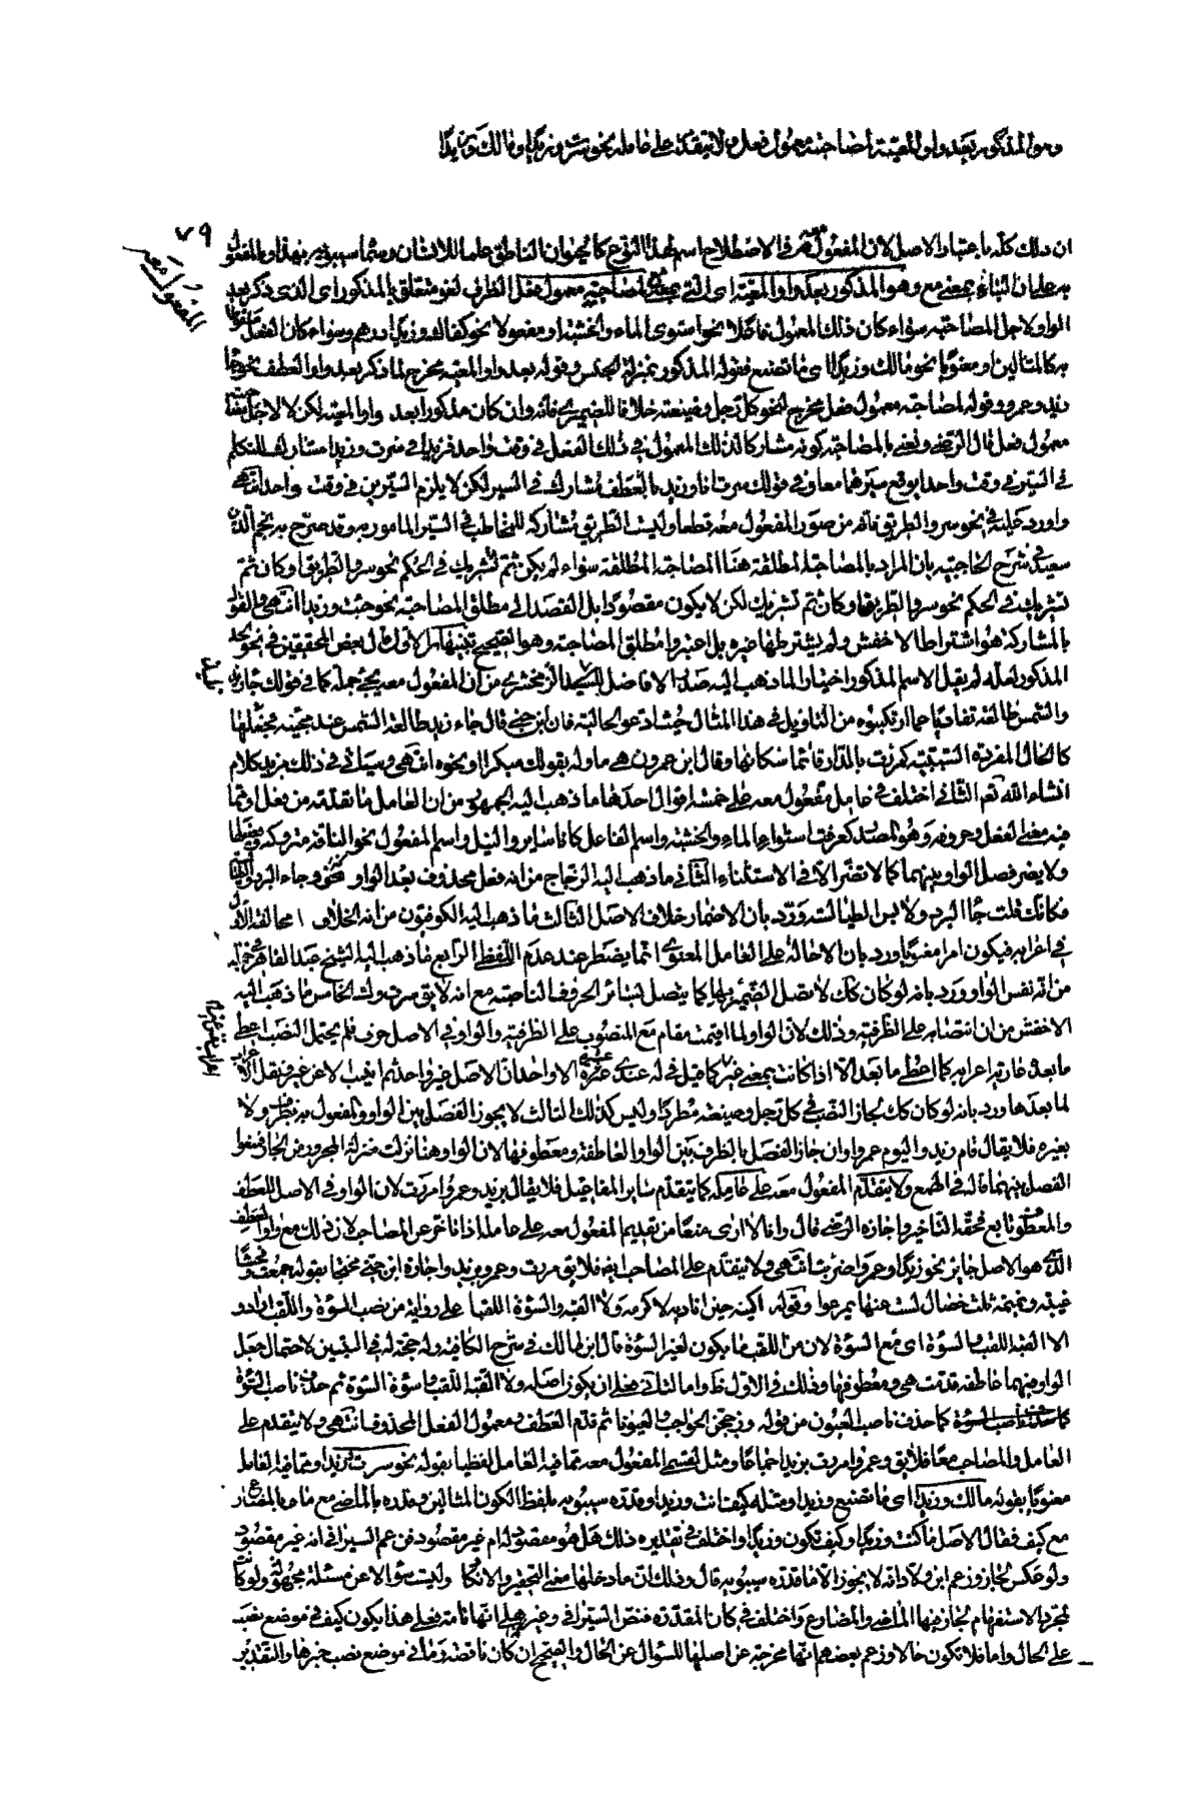 وهو المذكور بعد واو المعية لمصاحبته معمول فعل ولا يتقدم على عامله نحو سرت وزيدا ومالك وزيدا
٧٩
المفعول معه
ان ذلك كله باعتبار الاصل لان المفعول معه في الاصطلاح اسم لهذا النوع كما ان الناطق علما للانسان وربما سيبويه بهذا والمفعول
به على ان الباء بمعنى مع وهو المذكور بعد واو المعية اي التي بمعنى مع لمصاحبته معمول فعل الظرف لغو متعلق بالمذكور اي الذي ذكر بعد
الواو لاجل المصاحبة سواء كان ذلك المعمول فاعلا نحو استوى الماء والخشبة او مفعولا نحو كفاك وزيدا درهم وسواء كان الفعل ملفوظا
به كالمثالين او معنويا نحو مالك وزيدا اي ما تصنع فقوله المذكور بمنزلة الجنس وقوله بعد واو المعية مخرج لما ذكر بعد واو العطف نحو جاء
زيد وعمرو وقوله لمصاحبته معمول فعل مخرج لنحو كل رجل وضيعته خلافا للصيمري فانه وان كان مذكورا بعد واو المعية لكن لا لاجل مصاحبة
معمول فعل قال الرضي ونعني بالمصاحبة كونه مشاركا لذلك المعمول في ذلك الفعل في وقت واحد فزيد في سرت وزيدا مشارك للمتكلم
في السير في وقت واحد اي وقع سيرهما معا وفي قولك سرت انا وزيد بالعطف مشارك في السير لكن لا يلزم السيرين في وقت واحد انتهى
واورد عليه في نحو سر والطريق فانه من صور المفعول معه قطعا وليست الطريق مشاركة للمخاطب في السير المامور به وقد صرح به نجم الدين
سعيد في شرح الحاجبية بان المراد بالمصاحبة المطلقة هنا المصاحبة المطلقة سواء لم يكن ثم تشريك في الحكم نحو سر والطريق او كان ثم
تشريك في الحكم نحو سر والطريق او كان ثم تشريك لكن لا يكون مقصودا بل القصد الى مطلق المصاحبة نحو جئت وزيدا انتهى والقول
بالمشاركة هو اشتراط الاخفش ولم يشترطها غيره بل اعتبروا مطلق المصاحبة وهو الصحيح تنبيهات الاول قال بعض المحققين في نحو
المذكور لعله لم يقل الاسم المذكور اختيارا لما ذهب اليه صدر الافاضل تلميذ الزمخشري من ان المفعول معه يجيء جملة كما في قولك جاء زيد
والشمس طالعة تفاديا عما ارتكبوه من التاويل في هذا المثال حيث ادعو الحالية فان ابن جني قال جاء زيد طالعة الشمس عند مجيئه فجعلها
كالحال المفردة السببية كمررت بالدار قائما سكانها وقال ابن عمرون هي ماولة بقولك مبكرا او نحوه انتهى وسياتي في ذلك مزيد كلام
انشاء الله تعم الثاني اختلف في عامل المفعول معه على خمسة اقوال احدها ما ذهب اليه الجمهور من ان العامل ما تقدمه من فعل او ما
فيه معنى الفعل وحروفه وهو المصدر كعرفت استواء الماء والخشبة واسم الفاعل كانا ساير والنيل واسم المفعول نحو الناقة متروكة وفصيلها
ولا يضر فصل الواو بينهما كما لا تضر الا في الاستثناء الثاني ما ذهب اليه الزجاج من انه فعل محذوف بعد الواو نحو جاء البرد والطيالسة
فكانك قلت جاء البرد ولابس الطيالسة ورد بان الاضمار خلاف الاصل الثالث ما ذهب اليه الكوفيون من انه الخلاف اي مخالفة الاول
في اعرابه فيكون امرا معنويا ورد بان الاحالة على العامل المعنوي انما يضطر عند عدم اللفظي الرابع ما ذهب اليه الشيخ عبد القاهر في جمله
من انه نفس الواو ورد بانه لو كان كك لاتصل الضمير بها كما يتصل بساير الحروف الناصبة مع انه لا يق سرت وك الخامس ما ذهب اليه
الاخفش من ان انتصابه على الظرفية وذلك لان الواو لما اقيمت مقام مع المنصوب على الظرفية والواو في الاصل حرف فلم يحتمل النصب اعطي
ما بعدها عارية اعرابه كما اعطي ما بعد الا اذا كانت بمعنى غير كما قيل في له عندي عشرة الا واحدا ان الاصل غير واحد ثم انيب الا عن غير ونقل اعرابه
لما بعدها ورد بانه لو كان كك لجاز النصب في كل رجل وضيعته مطردا وليس كذلك الثالث لا يجوز الفصل بين الواو والمفعول به بظرف ولا
بغيره فلا يقال قام زيد واليوم عمرا وان جاز الفصل بالظرف بين الواو العاطفة ومعطوفها لان الواو هنا نزلت منزلة الجزء من الجار فمنعوا
الفصل بينهما قاله في الهمع ولا يتقدم المفعول معه على عامله كما يتقدم ساير المفاعيل فلا يقال بزيد وعمروا مررت لان الواو في الاصل للعطف
والمعطوف تابع فحقه التاخير واجازه الرضي قال وانا لا ارى منعا من تقديم المفعول معه على عامله اذا تاخر عن المصاحب لان ذلك مع واو العطف
الذي هو الاصل جايز نحو زيدا وعمرا ضربت انتهى ولا يتقدم على المصاحب ايضا فلا يق مررت وعمرو بزيد واجازه ابن جني محتجا بقوله جمعت وفحشا
غيبة ونميمة ثلث خصال لست عنها بمرعوا وقوله اكنيه حين اناديه لاكرمه ولا القبه والسوءة اللقبا على رواية من نصب السوءة واللقب اراد و
الا القبه اللقب والسوءة اي مع السوءة لان من اللقب ما يكون لغير السوءة قال ابن مالك في شرح الكافية ولا حجة له في البيتين لاحتمال جعل
الواو فيهما عاطفة قدمت هي ومعطوفها وذلك في الاول ظ واما الثاني فعلى ان يكون اصله ولا القبه اللقب واسوءة السوءة ثم حذف ناصب السوءة
كما حذف ناصب العيون من قوله وزججن الحواجب والعيونا ثم قدم العطف ومعمول الفعل المحذوف انتهى ولا يتقدم على
العامل والمصاحب معا فلا يق وعمروا مررت بزيد اجماعا ومثل لقسمي المفعول معه مما فيه العامل لفظيا بقوله نحو سرت وزيدا ومما فيه العامل
معنويا بقوله مالك وزيدا اي ما تصنع وزيدا ومثله كيف انت وزيدا وقدره سيبويه بلفظ الكون المثالين وقدره بالماضي مع ما وبالمضارع
مع كيف فقال الاصل ما كنت وزيدا وكيف تكون وزيدا واختلف في تقديره ذلك هل هو مقصود له ام غير مقصود فزعم السيرافي انه غير مقصود
ولو عكس لجاز وزعم ابن ولاد انه لا يجوز الا ما قدره سيبويه قال وذلك ان ما دخلها معنى التحقير والانكار وليست سؤالا عن مسئلة مجهولة ولو كان
لمجرد الاستفهام لجاز فيها الماضي والمضارع واختلف في كان المقدرة فنص السيرافي وغيره على انها تامة فعلى هذا يكون كيف في موضع نصب
على الحال واما ما فلا تكون حالا وزعم بعضهم انها مخرجة عن اصلها للسؤال عن الحال والصحيح ان كان ناقصة وما في موضع نصب خبرها والتقدير